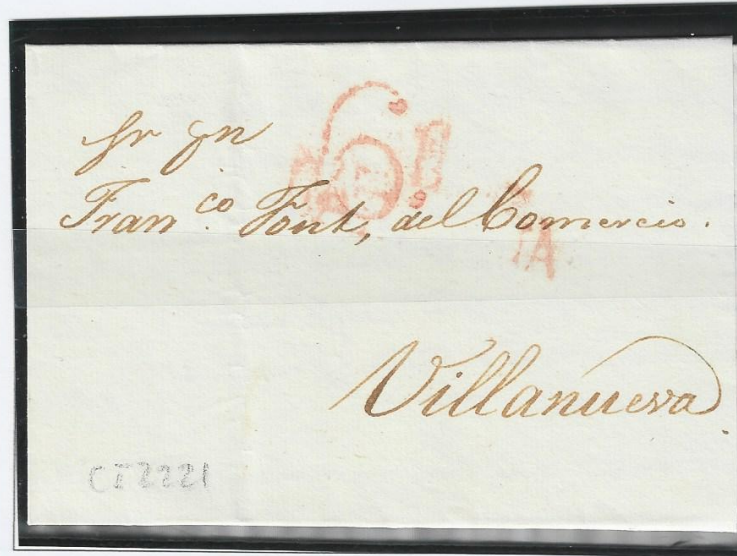 Sr Dn
Fran.co Font, del Comercio.
Villanueva
6
CI2221